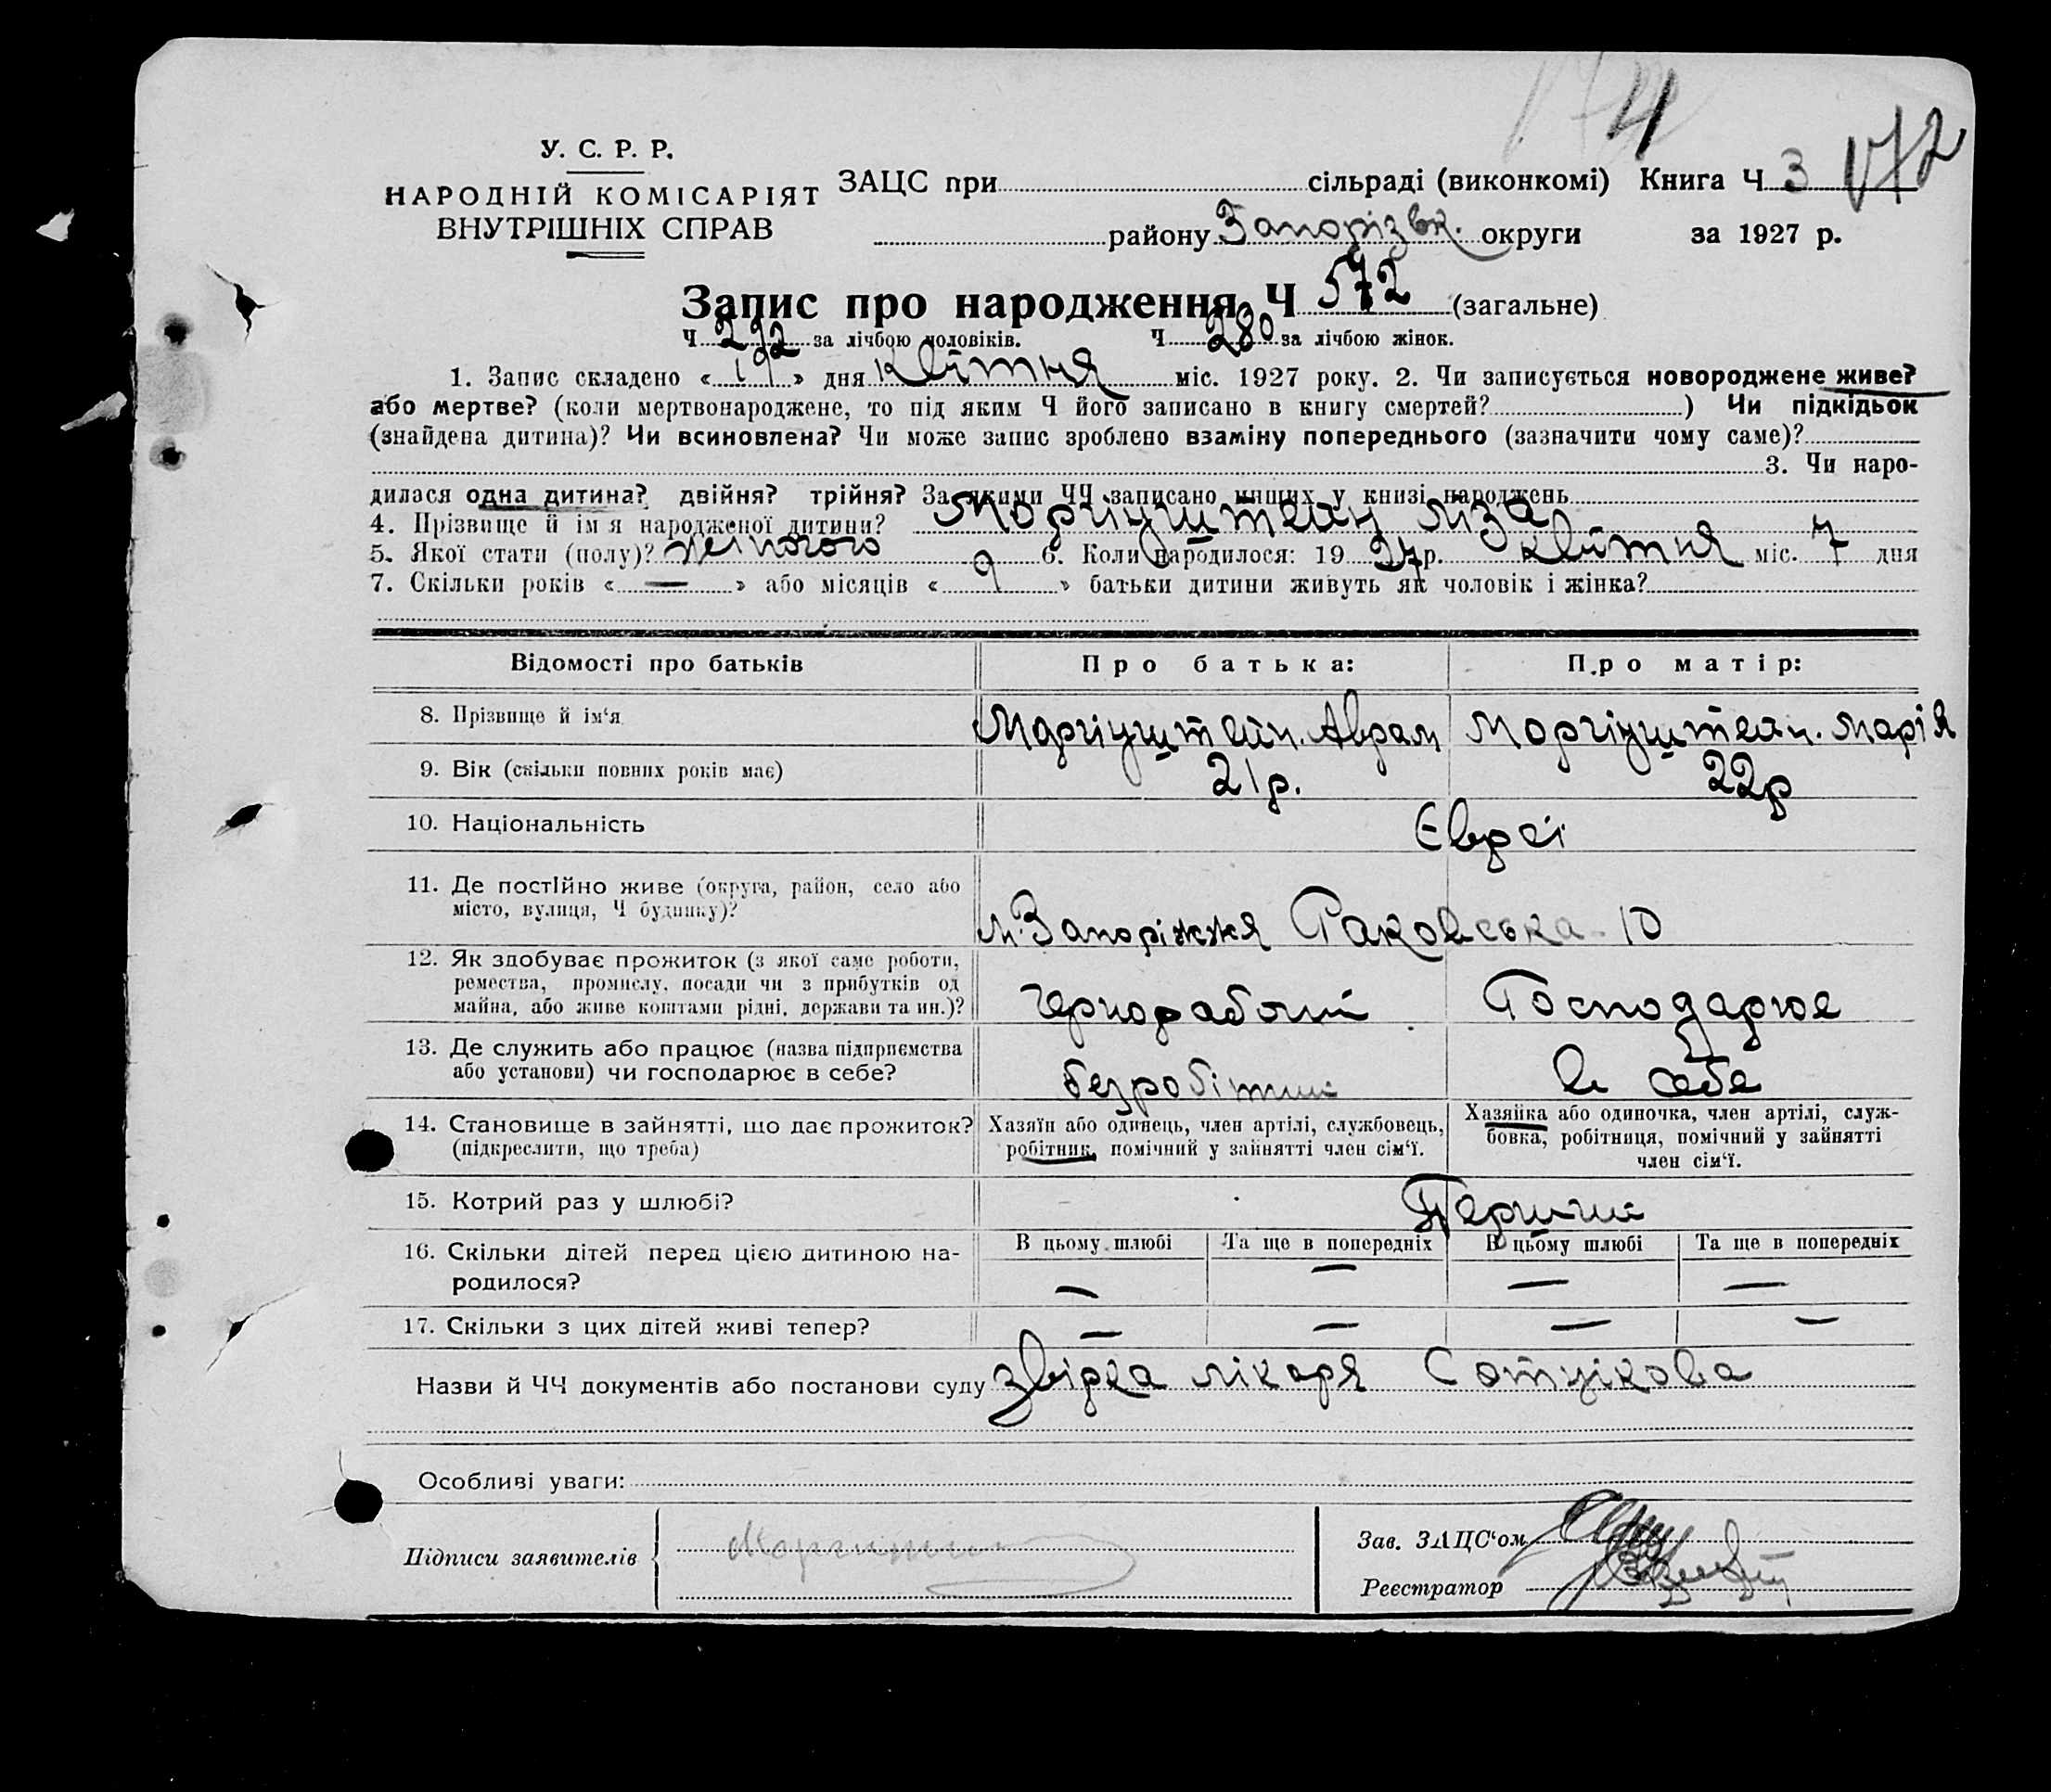 4
У. С. Р. Р.
НАРОДНІЙ КОМІСАРІЯТ
ВНУТРІШНІХ СПРАВ
ЗАЦС при сільраді (виконкомі) Книга Ч 3
172
району Запорізьк. округи за 1927 р.
Запис про народження Ч 572 (загальне)
Ч 292 за лічбою чоловіків. Ч 280 за лічбою жінок.
1. Запис складено « 19 » дня квітня міс. 1927 року. 2. Чи записується новороджене живе?
або мертве? (коли мертвонароджене, то під яким Ч його записано в книгу смертей? ) Чи підкідьок
(знайдена дитина)? Чи всиновлена? Чи може запис зроблено взаміну попереднього (зазначити чому саме)?
3. Чи наро-
дилася одна дитина? двійня? трійня? За якими ЧЧ записано инших у книзі народжень
4. Прізвище й ім я народженої дитини? Моргіунштейн Ліза
5. Якої стати (полу)? жіночого 6. Коли народилося: 19 27 р. квітня міс. 7 дня
7. Скільки років « — » або місяців « 9 » батьки дитини живуть як чоловік і жінка?
Відомості про батьків Про батька: Про матір:
8. Прізвище й ім‘я Аврам Марія
9. Вік (скільки повних років має) 21р. 22р
10. Національність Євреї
11. Де постійно живе (округа, район, село або
місто, вулиця, Ч будинку)?
м. Запоріжжя Раковська - 10
12. Як здобуває прожиток (з якої саме роботи,
ремества, промислу, посади чи з прибутків од
майна, або живе коштами рідні, держави та ин.)?
чернорабочий Господарює
13. Де служить або працює (назва підприємства
або установи) чи господарює в себе?
безробітний в себе
14. Становище в зайнятті, що дає прожиток?
(підкреслити, що треба)
Хазяїн або одинець, член артілі, службовець,
робітник, помічний у зайнятті член сім‘ї.
Хазяйка або одиночка, член артілі, служ-
бовка, робітниця, помічний у зайнятті
член сім‘ї.
15. Котрий раз у шлюбі? Перший
16. Скільки дітей перед цією дитиною на-
родилося?
В цьому шлюбі Та ще в попередніх В цьому шлюбі Та ще в попередніх
— — — —
17. Скільки з цих дітей живі тепер? — — — —
Назви й ЧЧ документів або постанови суду звірка лікаря Сотнікова
Особливі уваги:
Підписи заявителів
Зав. ЗАЦС‘ом
Реєстратор